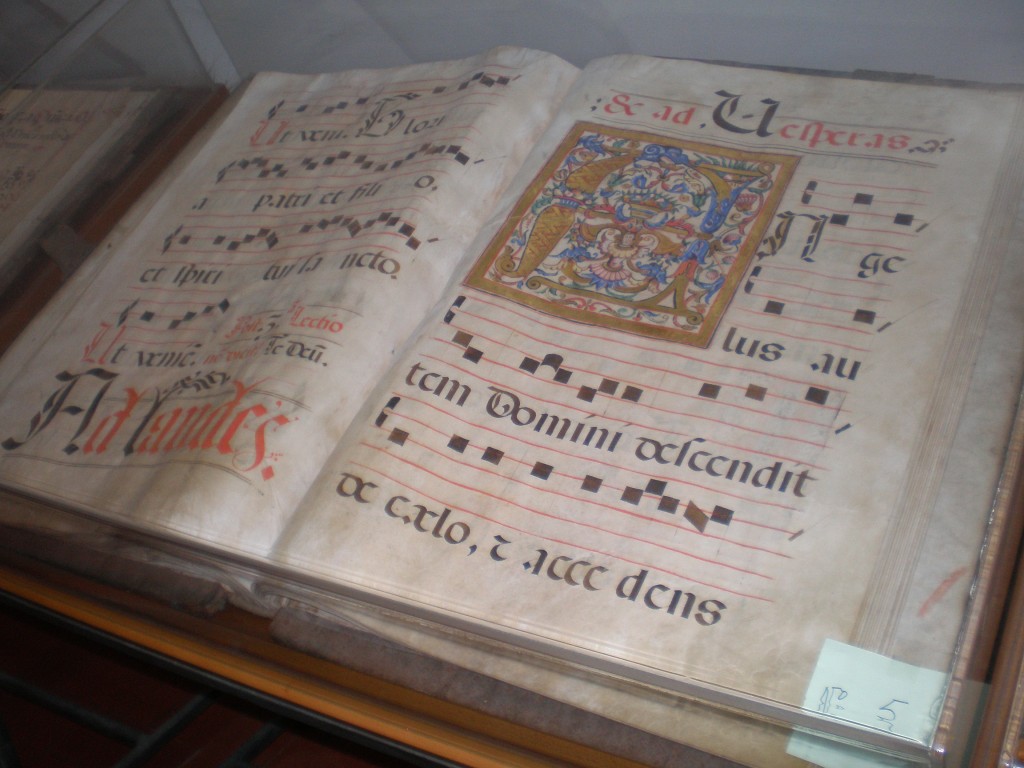 Ut veni. Glori
a patri et fili o,
et spiri tui sa ncto.
Lectio
Ut venié. Te Deū.
Ad Laudes
& ad Uesperas.
Ange
lus au
tem Domini descendit
de cælo, τ acce dens
Nº 5